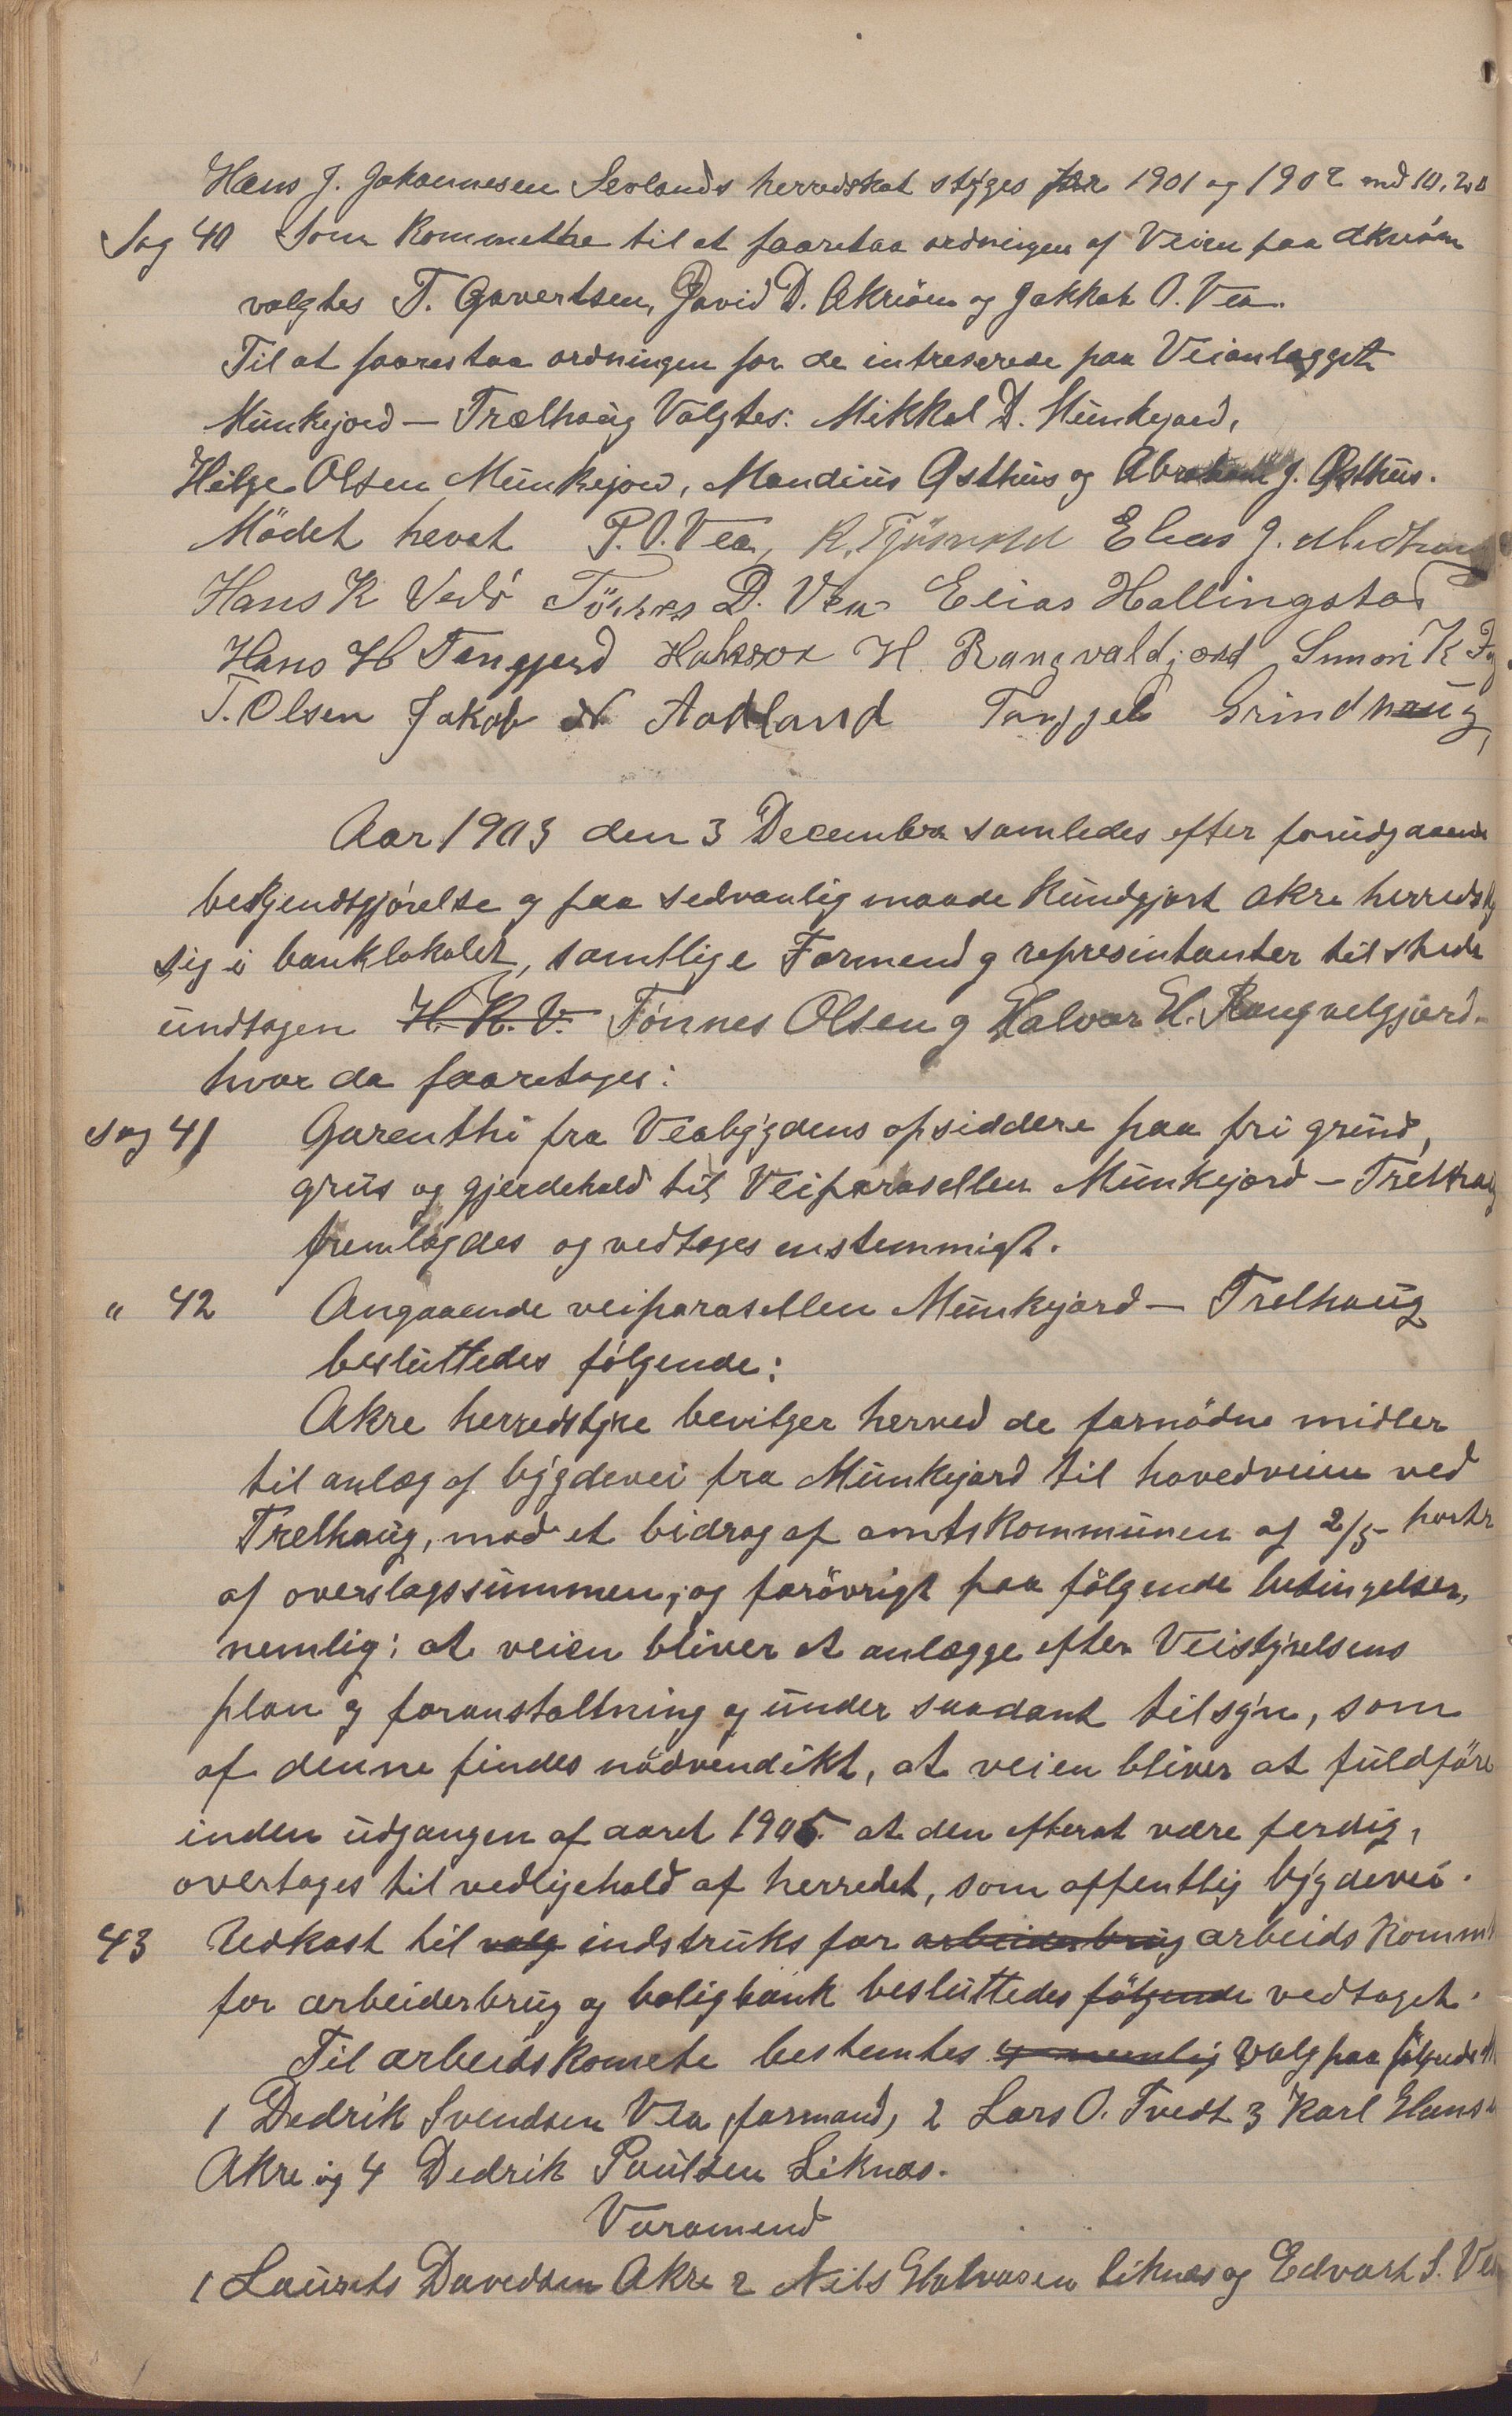 Hans J. Johannesen Sevlands herredskat stryges for 1901 og 1902 med 10,20
Sag 40 Som Kommethe til at faaretaa ordningen af Veien paa Akrøen
valgtes T. Gjavertsen, David D. Akrøen og Jakkob O. Vea.
Til at faarestaa ordningen for de intreserede paa Veianlægget
Munkejord — Trælhaug Valgtes: Mikkal D. Munkejord,
Helge Olsen Munkejord, Mandius Østhus og Abraham J. Østhus.
Mödet hevet P. O. Vea, R. Tjösvold Elias J. Medhaug
Hans K Vedö Tönnes D. Vea Elias Hallingstad
Hans H Tangjerd H. Rangvaldjord Simon K
T. Olsen Jakob N Aadland Torgjel Grindhaug
Aar 1903 den 3 December samledes efter forudgaaende
beskjendtgjørelse og paa sedvanlig maade Kundgjort Akre herredsty
sig i banklokalet, samtlige Formend og represintanter tilstede
undtagen H. K. V. Tönnes Olsen og Halvar H. Rangvelgjord.
hvor da faaretoges:
Sag 41 Garenthi fra Veabygdens opsiddere paa fri grund,
grus og gjerdehold til Veiparasellen Munkejord — Trelhaug
fremlagdes og vedtoges enstemmigt.
" 42 Angaaende veiparasellen Munkejord — Trelhaug
besluttedes følgende:
Akre herredstyre bevilger herved de fornödne midler
til anlæg af bygdevei fra Munkejord til hovedveien ved
Trelhaug, mod et bidrag af amtskommunen af 2/5 parter
af overslagssummen, og forövrigt paa fölgende betingelser,
nemlig: at veien bliver at anlægge efter Veistyrelsens
plan og foranstaltning og under saadant tilsyn, som
af denne findes nödvendikt, at veien bliver at fuldføre
inden udgangen af aaret 1905. at den efterat være ferdig,
overtages til vedligehold af herredet, som offentlig bygdevei.
43 Udkast til valg indstruks for arbeiderbrug arbeids Komm
for arbeiderbrug og boligbank besluttedes fölgende vedtaget.
Til arbeidskomete bestemtes og nemlig Valg paa følgende
1 Dedrik Svendsen Vea, formand, 2 Lars O. Tvedt 3 Karl Hans
Akre og 4 Dedrik Poulsen Liknes.
Varamend
1 Laurits Davedsen Akre 2 Nils Halvorsen Liknes og Edvart S. Vea